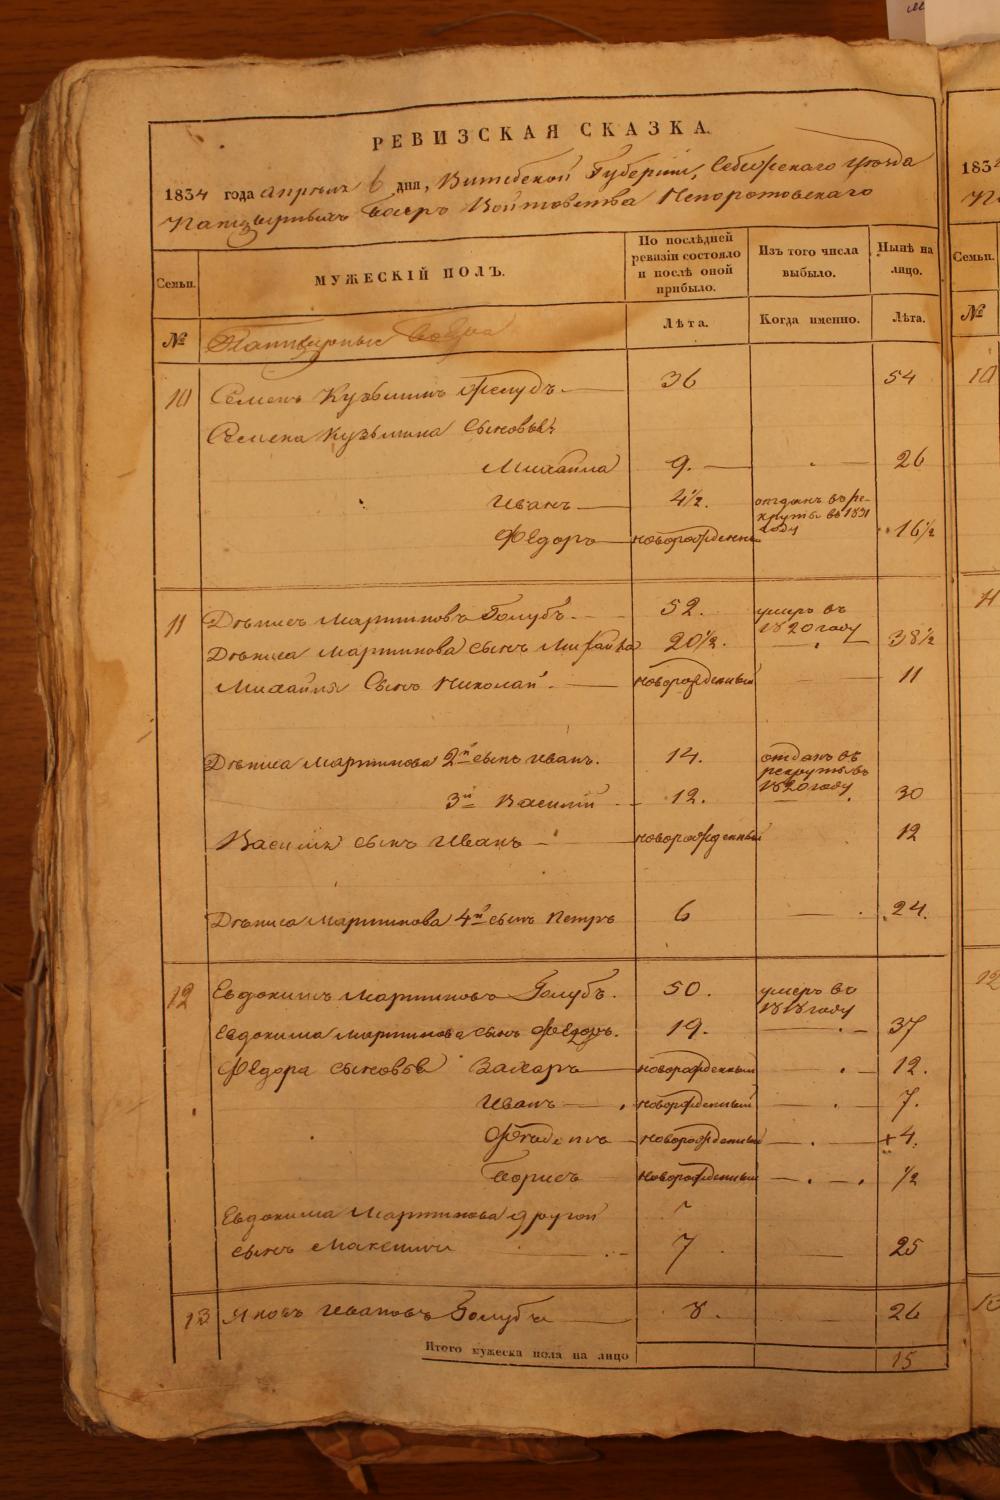 РЕВИЗСКАЯ СКАЗКА.
1834 года апреля 6 дня, Витебской Губернии, Себежскаго уезда
Панцырныхъ Бояръ Войтовства Непоротовскаго
Семьи.
МУЖЕСКІЙ ПОЛЪ.
По послѣдней ревизіи состояло и послѣ оной прибыло.
Изъ того числа выбыло.
Нынѣ на лицо.
№
Панцырные Бояра
Лѣта.
Когда именно.
Лѣта.
10 Семенъ Кузьминъ Голубъ. 36 54
Семена Кузьмина сыновья
Михайла 9. 26
Иванъ 4½. отданъ въ рекруты въ 1831 году
Федоръ новорожденный 16½
11 Дѣнисъ Мартиновъ Голубъ. 52. умеръ въ 1820 году
Дѣниса Мартинова сынъ Михайла 20½. 38½
Михайлы Сынъ Николай новорожденный 11
Дѣниса Мартинова 2й сынъ Иванъ. 14. отданъ въ рекруты въ 1820 году
3й Василій 12. 30
Василія сынъ Иванъ новорожденный 12
Дѣниса Мартинова 4й сынъ Петръ 6 24.
12 Евдокимъ Мартиновъ Голубъ. 50. умеръ въ 1818 году
Евдокима Мартинова сынъ Федоръ. 19. 37
Федора сыновья Захаръ новорожденный 12.
Иванъ новорожденный 7.
новорожденный 4.
Борисъ новорожденный ½
Евдокима Мартинова другой
сынъ Максимъ 7 25
13 Яковъ Ивановъ Голубъ 8. 26
Итого мужеска пола на лицо 15
1834
Семьи.
№
10
11
12
13